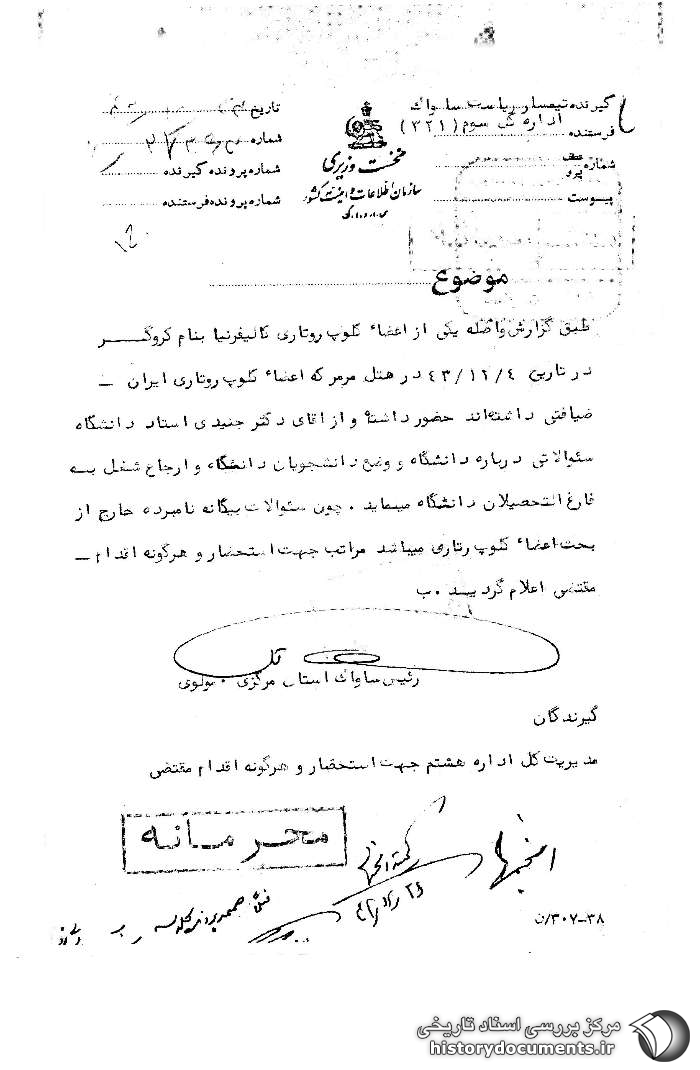 گیرنده تیمسار ریاست ساواک
فرستنده اداره کل سوم (۳۲۱)
شماره
پیوست
نخست وزیری
سازمان اطلاعات و امنیت کشور
تاریخ
شماره
شماره پرونده گیرنده
شماره پرونده فرستنده
موضوع
طبق گزارش واصله یکی از اعضاء کلوپ روتاری کالیفرنیا بنام کروگر
در تاریخ ۴۳/۱۲/۴ در هتل مرمر که اعضاء کلوپ روتاری ایران –
ضیافتی داشته‌اند حضور داشته و از اقای دکتر جنیدی استاد دانشگاه
سئوالاتی درباره دانشگاه و وضع دانشجویان دانشگاه و ارجاع شغل به
فارغ التحصیلان دانشگاه مینماید . چون سئوالات بیگانه نامبرده خارج از
بحث اعضاء کلوپ رتاری میباشد مراتب جهت استحضار و هرگونه اقدام –
مقتضی اعلام گردید . ب
رئیس ساواک استان مرکزی . مولوی
گیرندگان
مدیریت کل اداره هشتم جهت استحضار و هرگونه اقدام مقتضی
محرمانه
انجمنها
۳۸-۳۰۷/ن
مرکز بررسی اسناد تاریخی
historydocuments.ir